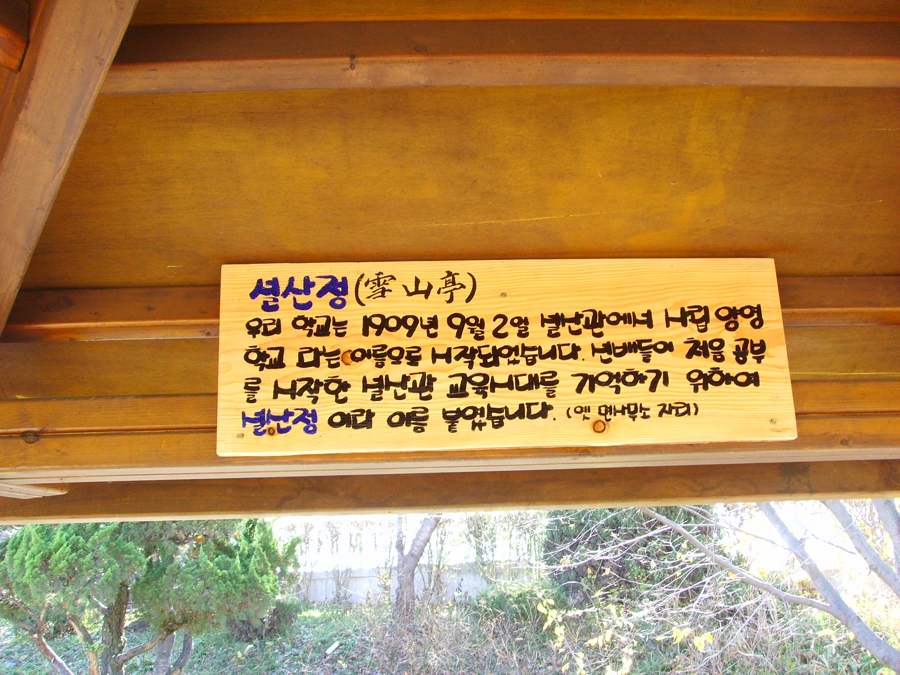 설산정(雪山亭)
우리 학교는 1909년 9월 2일 설산관에서 사립 양영
학교 라는 이름으로 시작되었습니다. 선배들이 처음 공부
를 시작한 설산관 교육시대를 기억하기 위하여
설산정 이라 이름 붙였습니다. (옛 면사무소 자리)